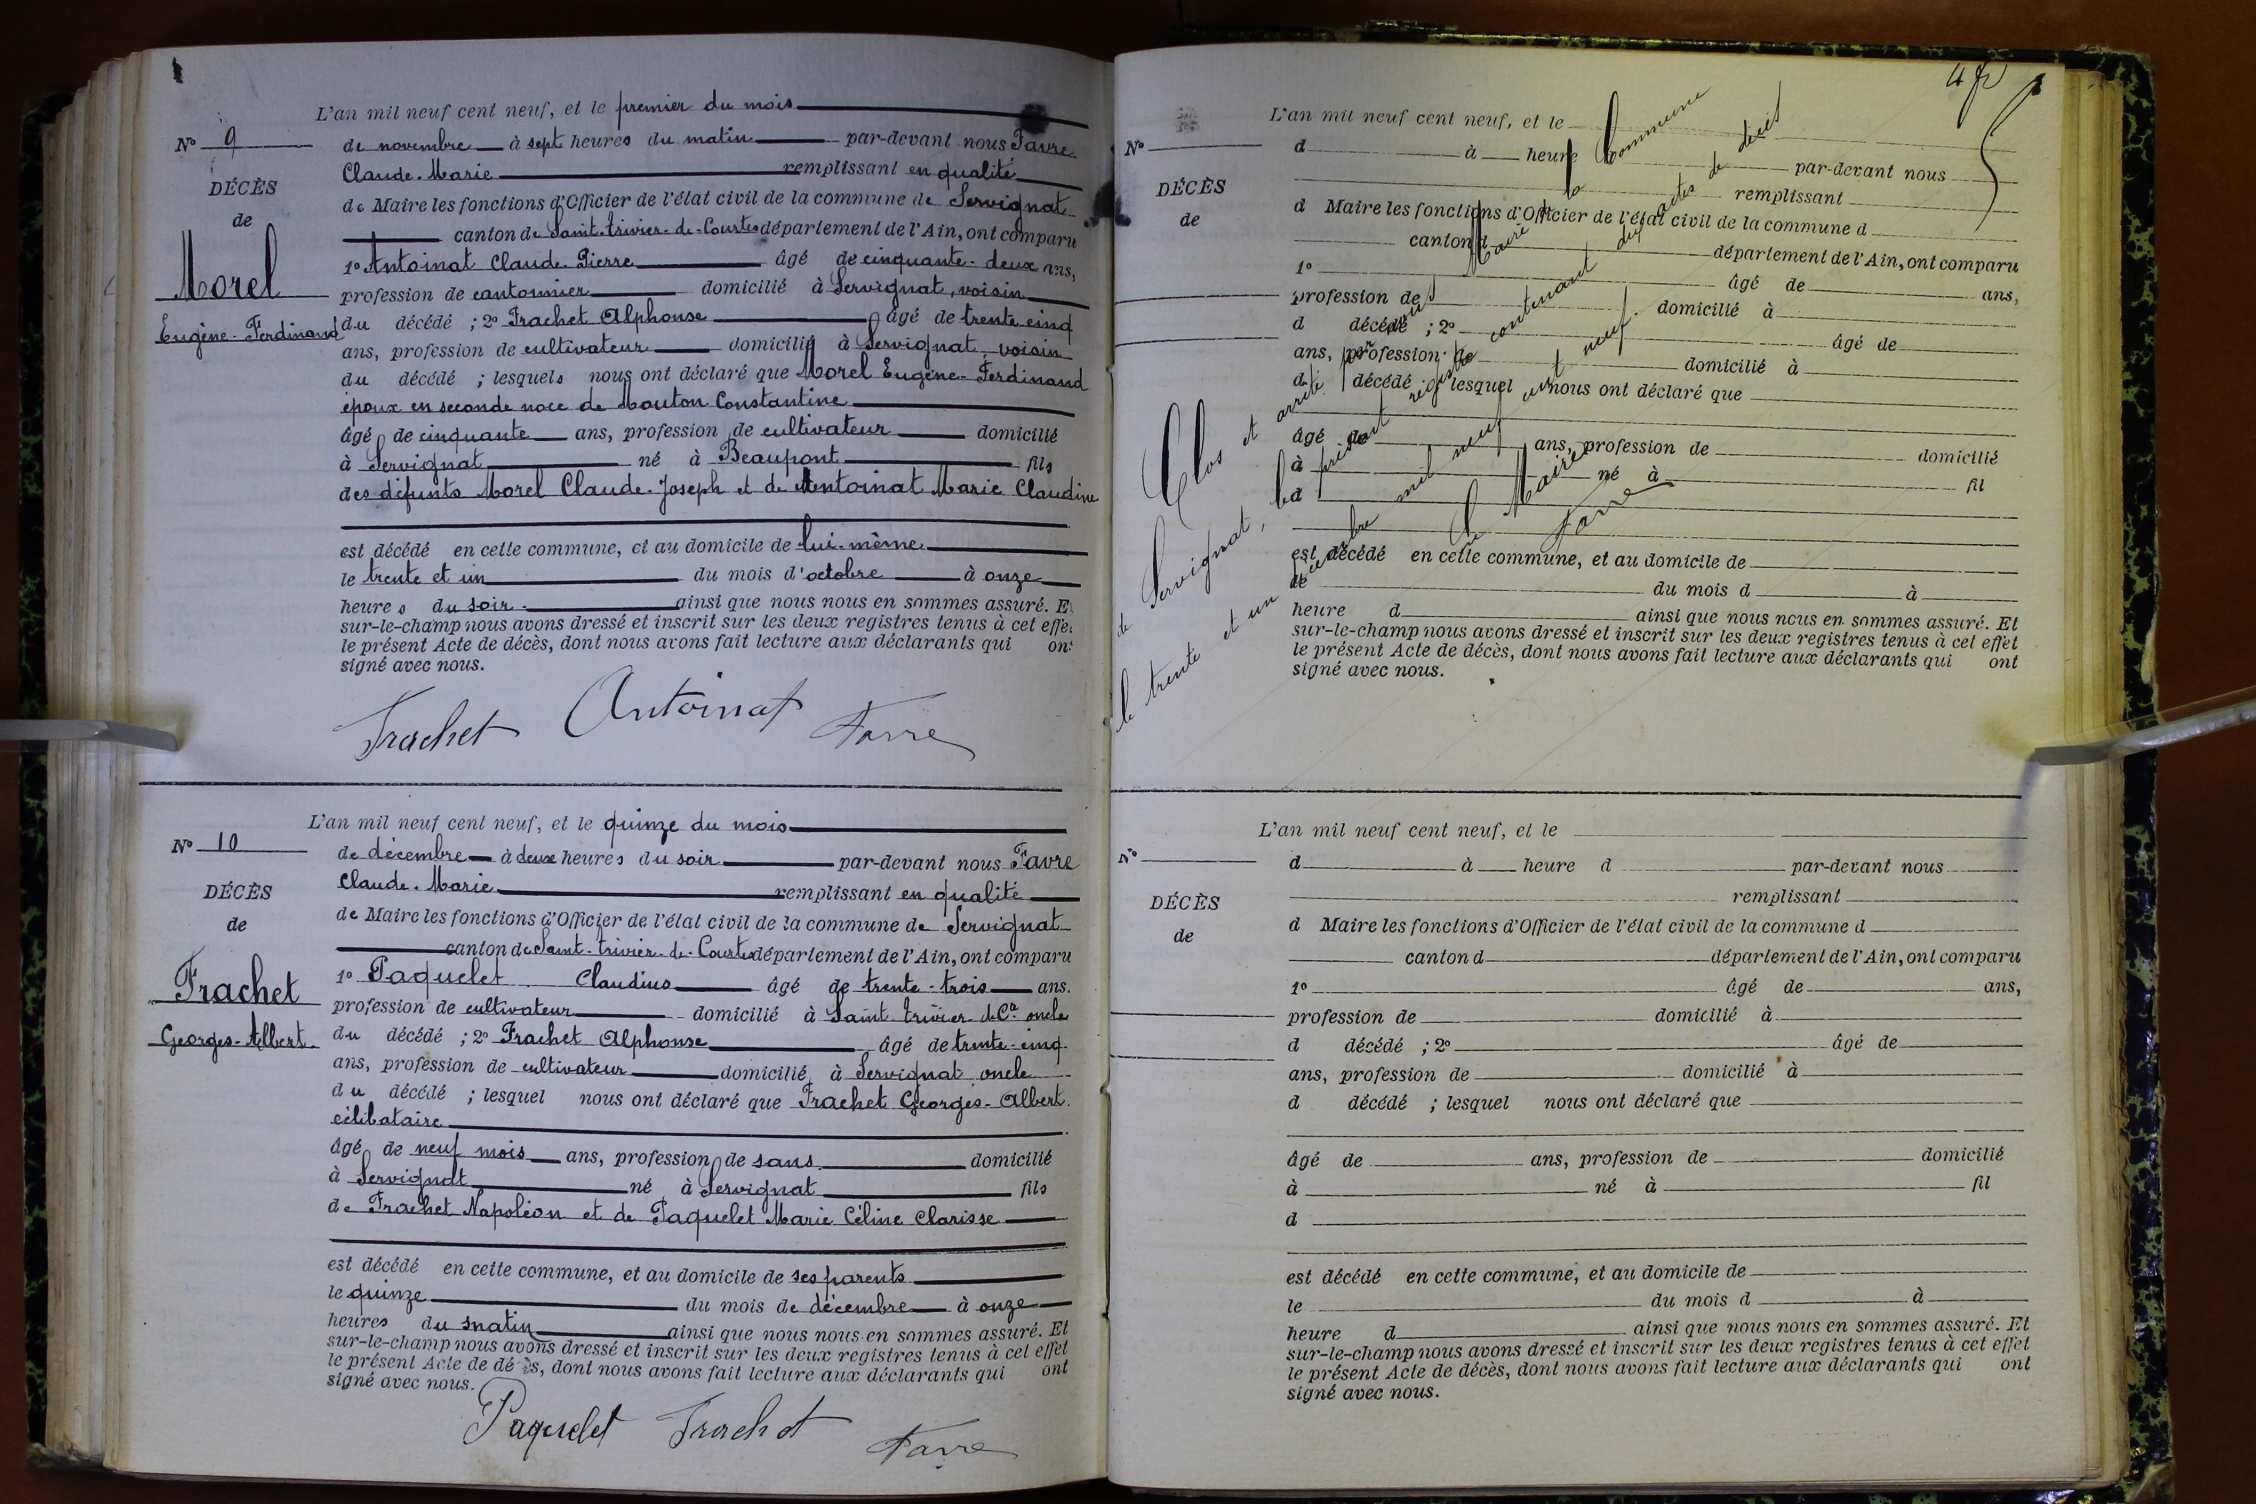 L'an mil neuf cent neuf, et le premier du mois
N° 9
de novembre à sept heures du matin par-devant nous Favre
Claude-Marie remplissant en qualité
DÉCÈS
de
de Maire les fonctions d'Officier de l'état civil de la commune de Servignat
canton de Saint-trivier-de-Courtes département de l'Ain, ont comparu
Morel
Eugène-Ferdinand
1° Antoinat Claude-Pierre âgé de cinquante-deux ans,
profession de cantonnier domicilié à Servignat, voisin
du décédé ; 2° Frachet Alphonse âgé de trente cinq
ans, profession de cultivateur domicilié à Servignat, voisin
du décédé ; lesquels nous ont déclaré que Morel Eugène-Ferdinand
époux en seconde noce de Mouton Constantine
âgé de cinquante ans, profession de cultivateur domicilié
à Servignat né à Beaupont fils
des défunts Morel Claude-Joseph et de Antoinat Marie Claudine
est décédé en cette commune, et au domicile de lui-même
le trente et un du mois d'octobre à onze
heures du soir ainsi que nous nous en sommes assuré. Et
sur-le-champ nous avons dressé et inscrit sur les deux registres tenus à cet effet
le présent Acte de décès, dont nous avons fait lecture aux déclarants qui ont
signé avec nous.
Frachet Antoinat Favre
L'an mil neuf cent neuf, et le quinze du mois
N° 10
de décembre à deux heures du soir par-devant nous Favre
Claude-Marie remplissant en qualité
DÉCÈS
de
de Maire les fonctions d'Officier de l'état civil de la commune de Servignat
canton de Saint-trivier-de-Courtes département de l'Ain, ont comparu
Frachet
Georges-Albert
1° Paquelet Claudius âgé de trente-trois ans.
profession de cultivateur domicilié à Saint-trivier de Ctes oncle
du décédé ; 2° Frachet Alphonse âgé de trente-cinq
ans, profession de cultivateur domicilié à Servignat oncle
du décédé ; lesquel nous ont déclaré que Frachet Georges-Albert
célibataire
âgé de neuf mois ans, profession de sans domicilié
à Servignat né à Servignat fils
de Frachet Napoléon et de Paquelet Marie Céline Clarisse
est décédé en cette commune, et au domicile de ses parents
le quinze du mois de décembre à onze
heures du matin ainsi que nous nous en sommes assuré. Et
sur-le-champ nous avons dressé et inscrit sur les deux registres tenus à cet effet
le présent Acte de décès, dont nous avons fait lecture aux déclarants qui ont
signé avec nous.
Paquelet Frachet Favre
L'an mil neuf cent neuf, et le
N°
d à heure par-devant nous
remplissant
DÉCÈS
de
d Maire les fonctions d'Officier de l'état civil de la commune d
canton d département de l'Ain, ont comparu
1° âgé de ans,
profession de domicilié à
d décédé ; 2° âgé de
ans, profession de domicilié à
d décédé ; lesquel nous ont déclaré que
âgé de ans, profession de domicilié
à né à fil
d
est décédé en cette commune, et au domicile de
le du mois d à
heure d ainsi que nous nous en sommes assuré. Et
sur-le-champ nous avons dressé et inscrit sur les deux registres tenus à cet effet
le présent Acte de décès, dont nous avons fait lecture aux déclarants qui ont
signé avec nous.
Clos et arrêté par nous Maire de la Commune
de Servignat, le présent registre contenant dix actes de décès
le trente et un décembre mil neuf cent neuf.
Le Maire
Favre
L'an mil neuf cent neuf, et le
N°
d à heure d par-devant nous
remplissant
DÉCÈS
de
d Maire les fonctions d'Officier de l'état civil de la commune d
canton d département de l'Ain, ont comparu
1° âgé de ans,
profession de domicilié à
d décédé ; 2° âgé de
ans, profession de domicilié à
d décédé ; lesquel nous ont déclaré que
âgé de ans, profession de domicilié
à né à fil
d
est décédé en cette commune, et au domicile de
le du mois d à
heure d ainsi que nous nous en sommes assuré. Et
sur-le-champ nous avons dressé et inscrit sur les deux registres tenus à cet effet
le présent Acte de décès, dont nous avons fait lecture aux déclarants qui ont
signé avec nous.